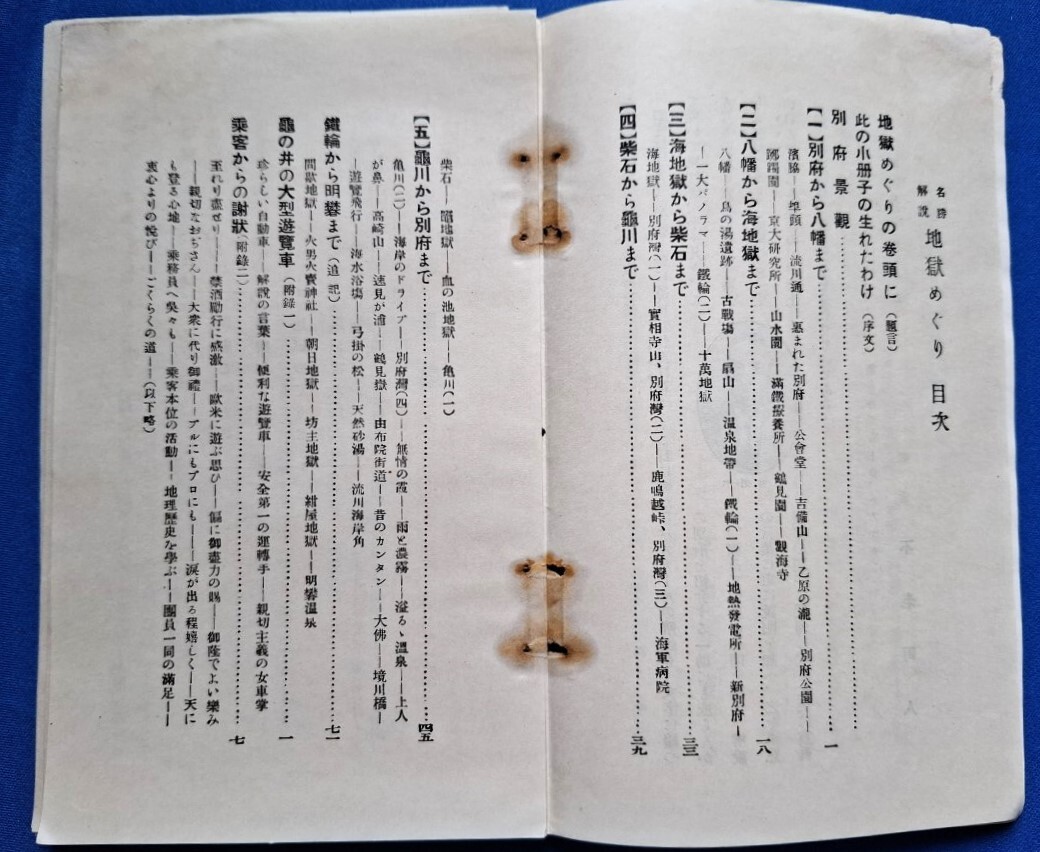 名勝解説 地獄めぐり 目次
地獄めぐりの卷頭に(題言)
此の小册子の生れたわけ(序文)
別府景觀……一
【一】別府から八幡まで
濱脇――埠頭――流川通――惠まれた別府――公會堂――吉備山――乙原の瀧――別府公園――
躑躅園――京大研究所――山水園――滿鐵療養所――鶴見園――觀海寺
【二】八幡から海地獄まで……一八
八幡――鳥の湯遺跡――古戰場――扇山――溫泉地帶――鐵輪(一)――地熱發電所――新別府――
一大パノラマ――鐵輪(二)――十萬地獄
【三】海地獄から柴石まで……三三
海地獄――別府灣(一)――實相寺山、別府灣(二)――鹿鳴越峠、別府灣(三)――海軍病院
【四】柴石から龜川まで……三九
柴石――龍地獄――血の池地獄――亀川(一)
【五】龜川から別府まで……四五
亀川(二)――海岸のドライブ――別府灣(四)――無情の霞――雨と濃霧――溢るゝ溫泉――上人
が鼻――高崎山――速見が浦――鶴見嶽――由布院街道――昔のカンタン――大佛――境川橋――
遊覽飛行――海水浴場――弓掛の松――天然砂湯――流川海岸角
鐵輪から明礬まで(追記)……七一
間歇地獄――火男火賣神社――朝日地獄――坊主地獄――紺屋地獄――明礬溫泉
龜の井の大型遊覽車(附錄一)……一
珍らしい自動車――解說の言葉――便利な遊覽車――安全第一の運轉手――親切主義の女車掌
乘客からの謝狀(附錄二)……七
至れり盡せり――禁酒勵行に感激――歐米に遊ぶ思ひ――偏に御盡力の賜――御隆でよい樂み
――親切なおぢさん――大衆に代り御禮――ブルにもプロにも――淚が出る程嬉しく――天に
も登る心地――乘務員へ吳々も――乘客本位の活動――地理歷史を學ぶ――團員一同の滿足――
衷心よりの悅び――ごくらくの道――(以下略)